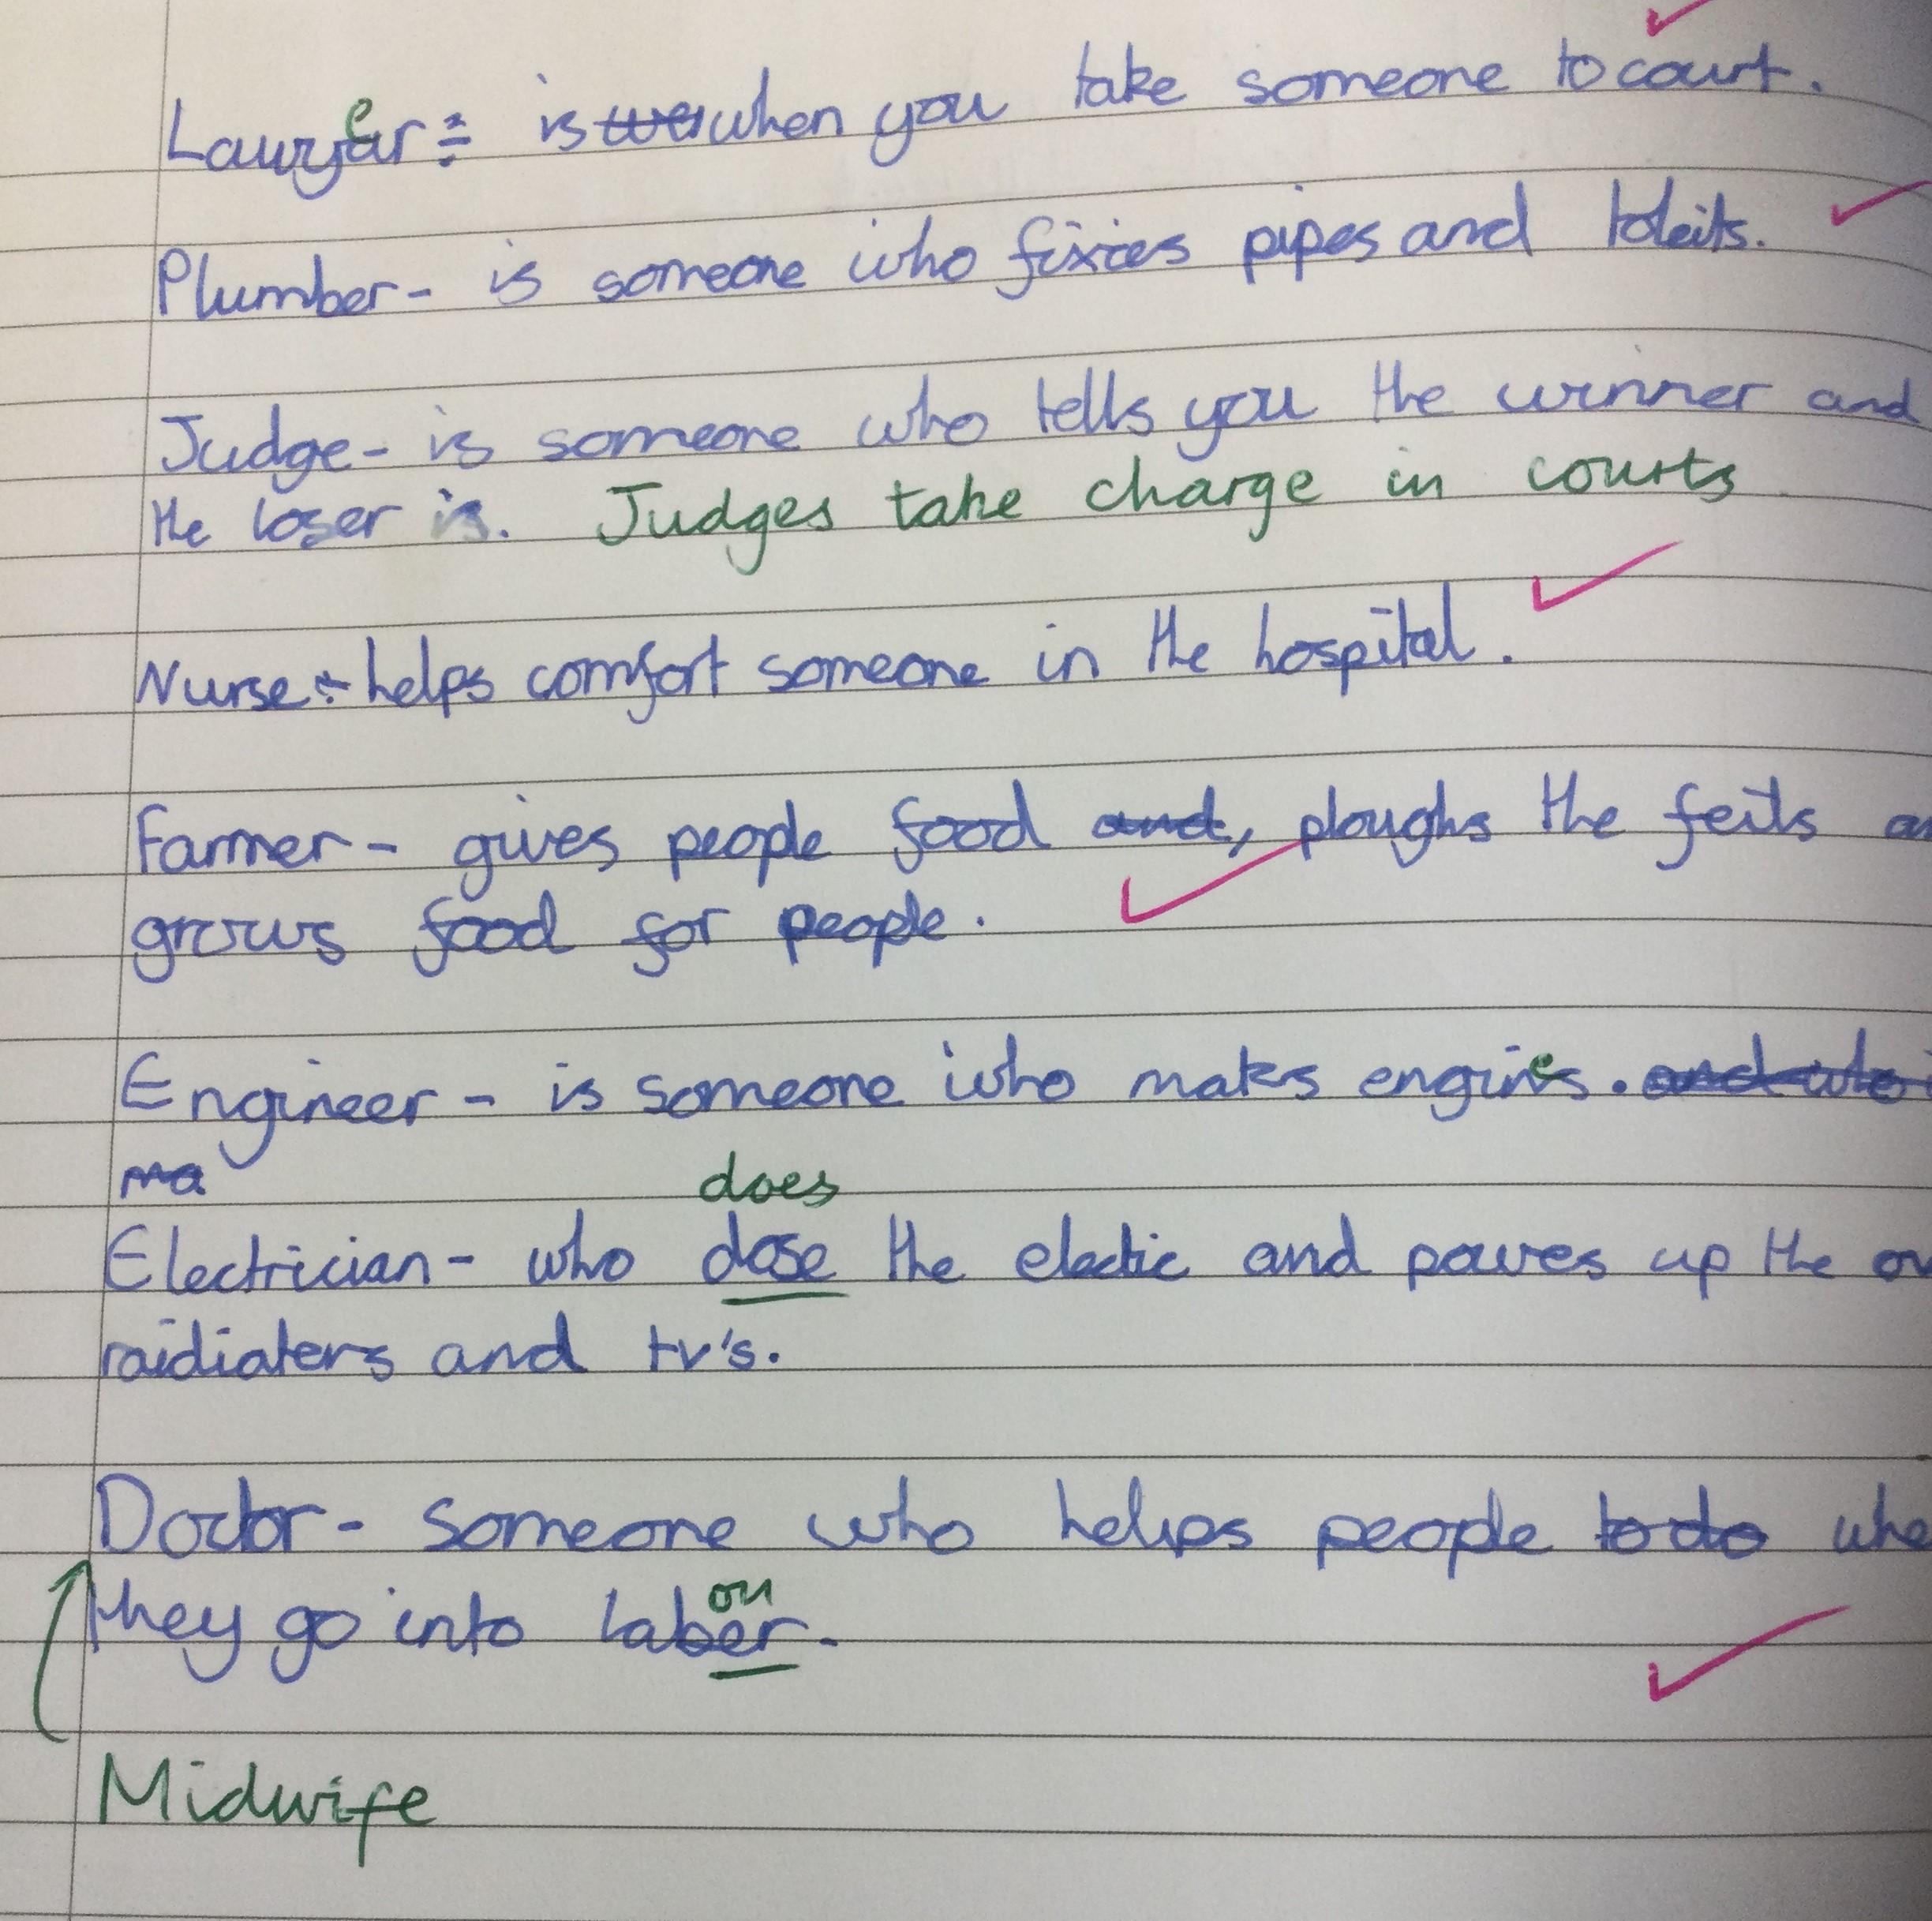 Lawyer - is when you take someone to court.
Plumber - is someone who fixies pipes and toleits.
Judge - is someone who tells you the winner and
the loser is. Judges take charge in courts
Nurse - helps comfort someone in the hospital.
Farmer - gives people food and, ploughs the feils
grows food for people.
Engineer - is someone who makes engines. and who
ma
does
Electrician - who dose the electic and powes up the
raidiaters and tv's.
Doctor - someone who helps people to do
they go into laber.
ou
Midwife